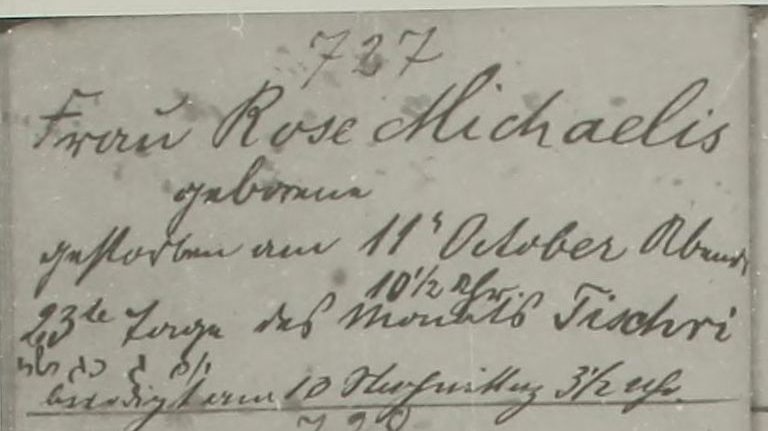 727
Frau Rose Michaelis
geborene
gestorben am 11ᵗ October Abends
10½ Uhr
23te Tage des Monats Tischri
beerdigt am Nachmittag 3½ Uhr